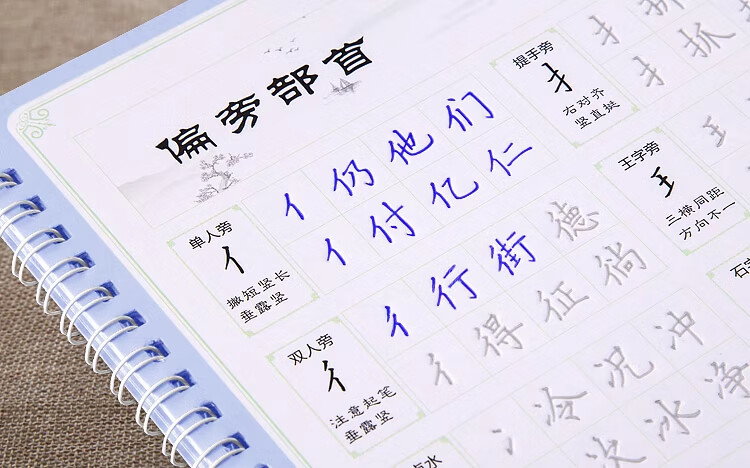 偏旁部首
单人旁
亻
撇短竖长
垂露竖
亻仍他们
亻付亿仁
双人旁
彳
注意起笔
垂露竖
彳行街德
彳得征徜
冫冷况冲
冰净
点水
提手旁
扌
右对齐
竖直拱
扌抓
扌
王字旁
王
三横同距
方向不一
王
石字